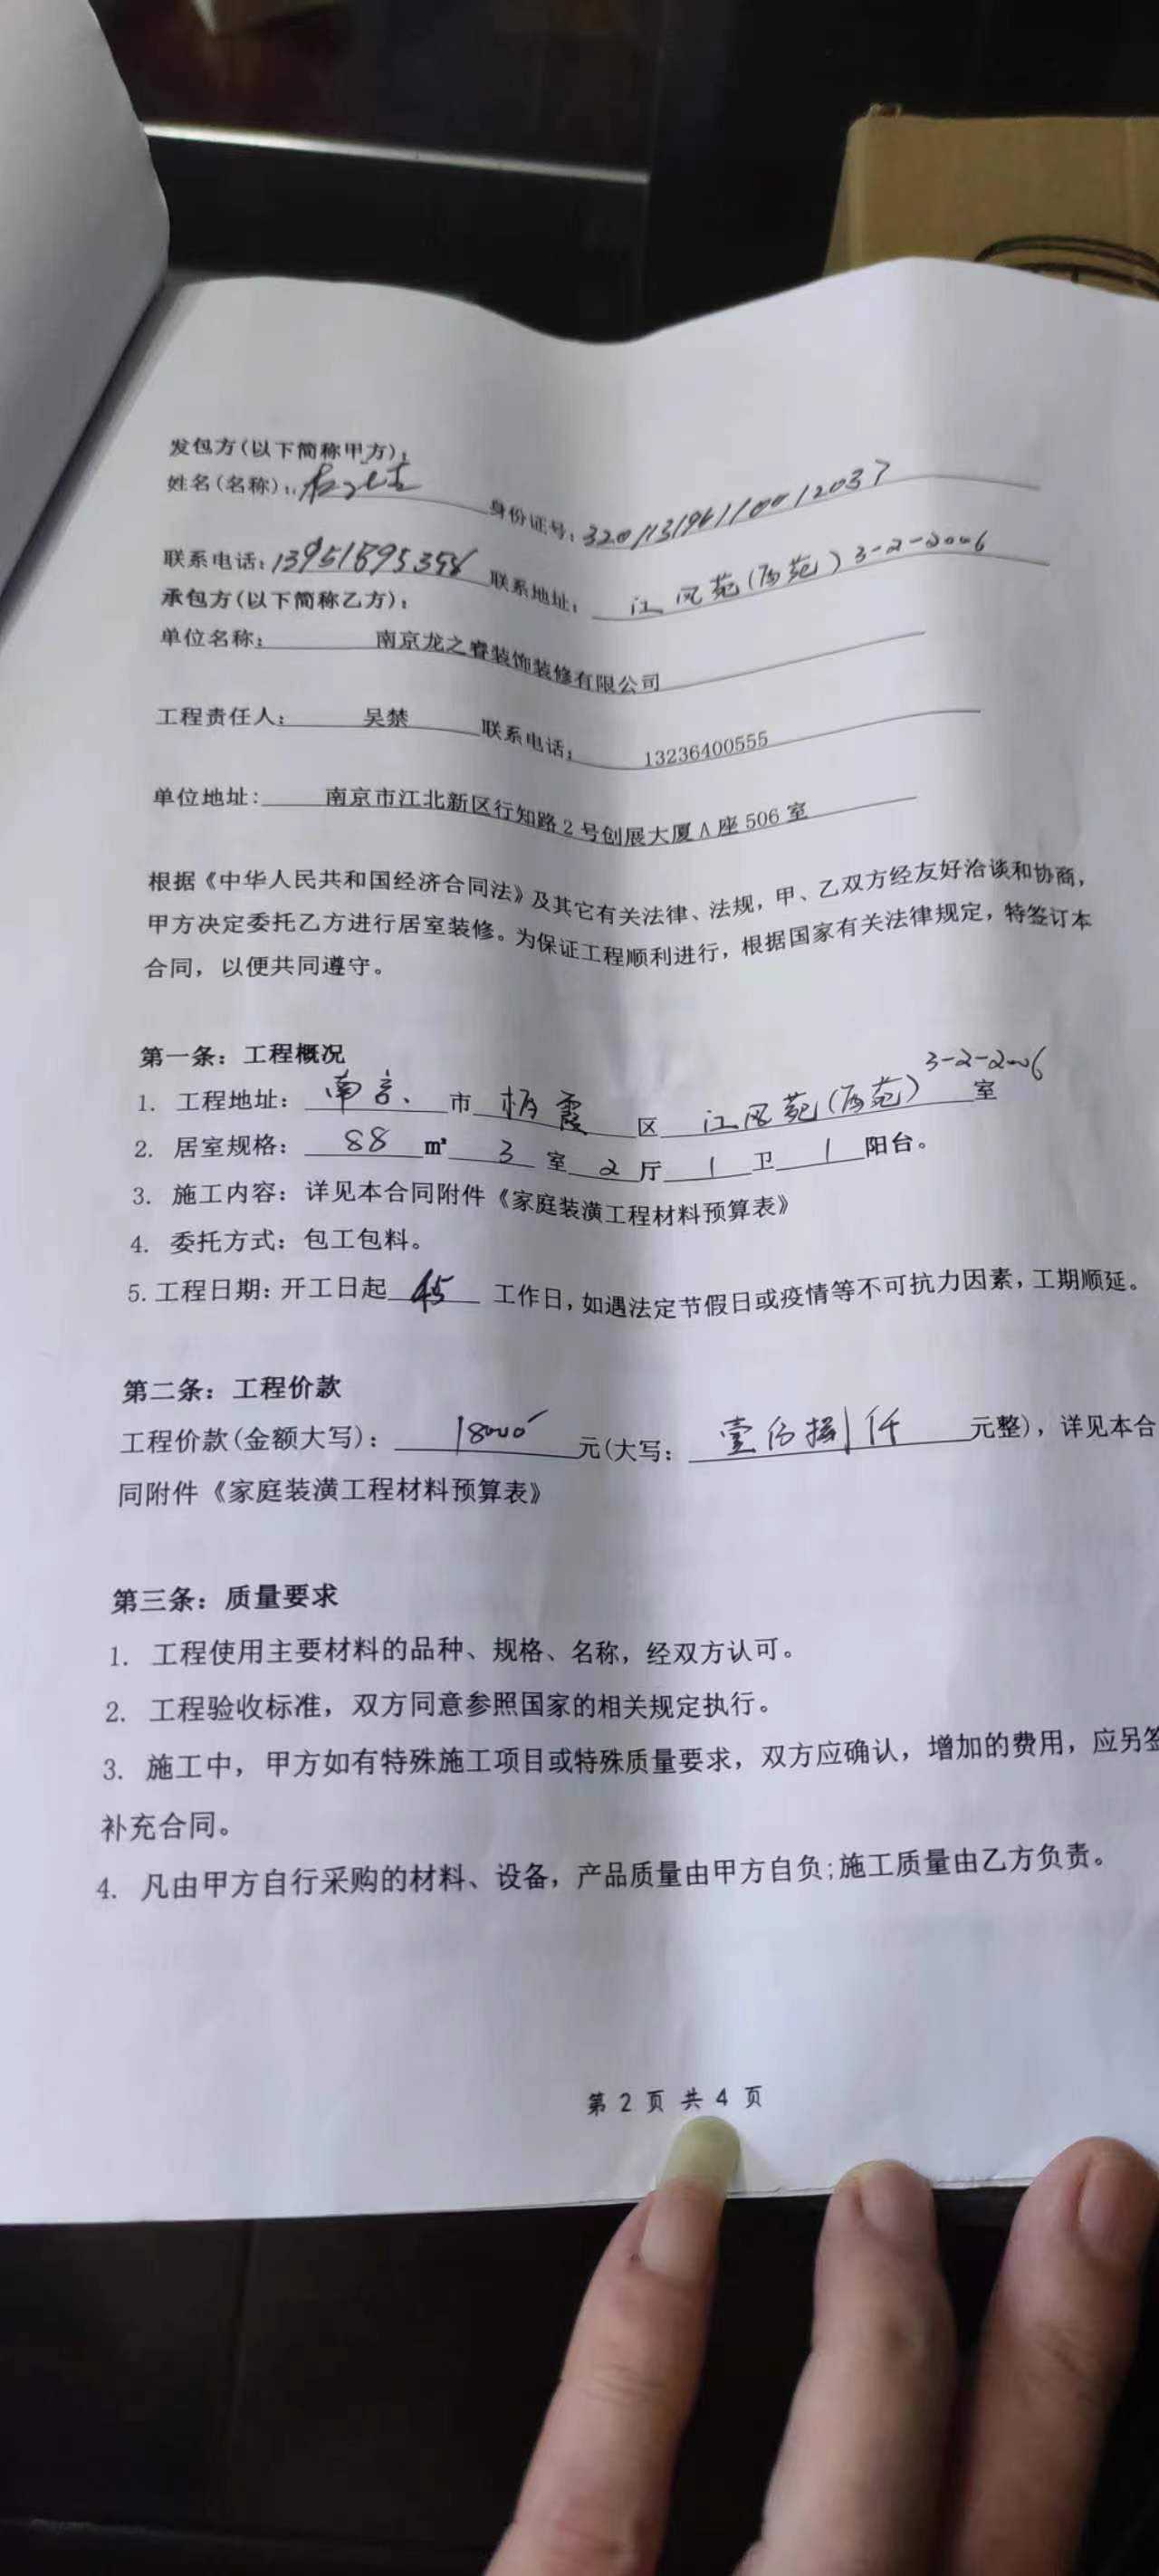 发包方(以下简称甲方):
姓名(名称): 身份证号:
联系电话:13951895398 联系地址: 江风苑(西苑)3-2-2006
承包方(以下简称乙方):
单位名称: 南京龙之睿装饰装修有限公司
工程责任人: 吴禁 联系电话: 13236400555
单位地址: 南京市江北新区行知路2号创展大厦A座506室
根据《中华人民共和国经济合同法》及其它有关法律、法规,甲、乙双方经友好洽谈和协商,
甲方决定委托乙方进行居室装修。为保证工程顺利进行,根据国家有关法律规定,特签订本
合同,以便共同遵守。
第一条:工程概况
1. 工程地址: 南京 市 栖霞 区 江风苑(西苑)3-2-2006 室
2. 居室规格: 88 m² 3 室 2 厅 1 卫 1 阳台。
3. 施工内容:详见本合同附件《家庭装潢工程材料预算表》
4. 委托方式:包工包料。
5.工程日期:开工日起 45 工作日,如遇法定节假日或疫情等不可抗力因素,工期顺延。
第二条:工程价款
工程价款(金额大写): 元(大写: 元整),详见本合
同附件《家庭装潢工程材料预算表》
第三条:质量要求
1. 工程使用主要材料的品种、规格、名称,经双方认可。
2. 工程验收标准,双方同意参照国家的相关规定执行。
3. 施工中,甲方如有特殊施工项目或特殊质量要求,双方应确认,增加的费用,应另签
补充合同。
4. 凡由甲方自行采购的材料、设备,产品质量由甲方自负;施工质量由乙方负责。
第 2 页 共 4 页